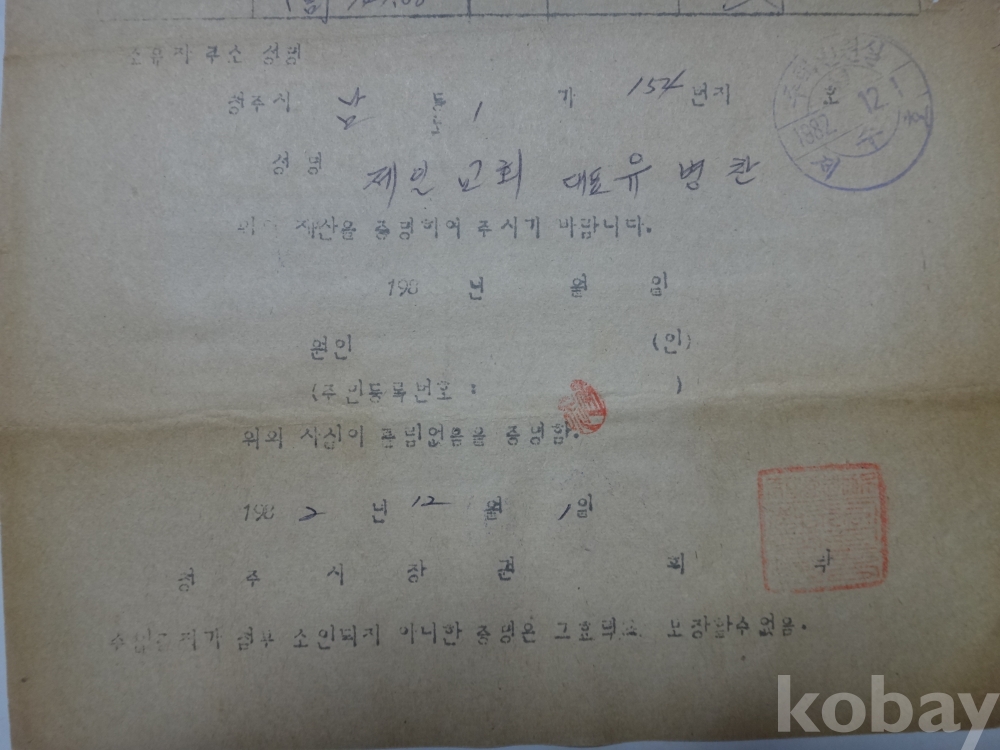 소유자 주소 성명
청주시 남문 1 가 154 번지
성명 제일교회 대표 유병찬
위의 재산을 증명하여 주시기 바랍니다.
198 년 월 일
원인 (인)
(주민등록번호 : )
위의 사실이 틀림없음을 증명함.
198 2 년 12 월 1 일
청 주 시 장
수입증지가 첨부 소인되지 아니한 증명은 그 효력을 보장할수없음.
1982
12 1
kobay